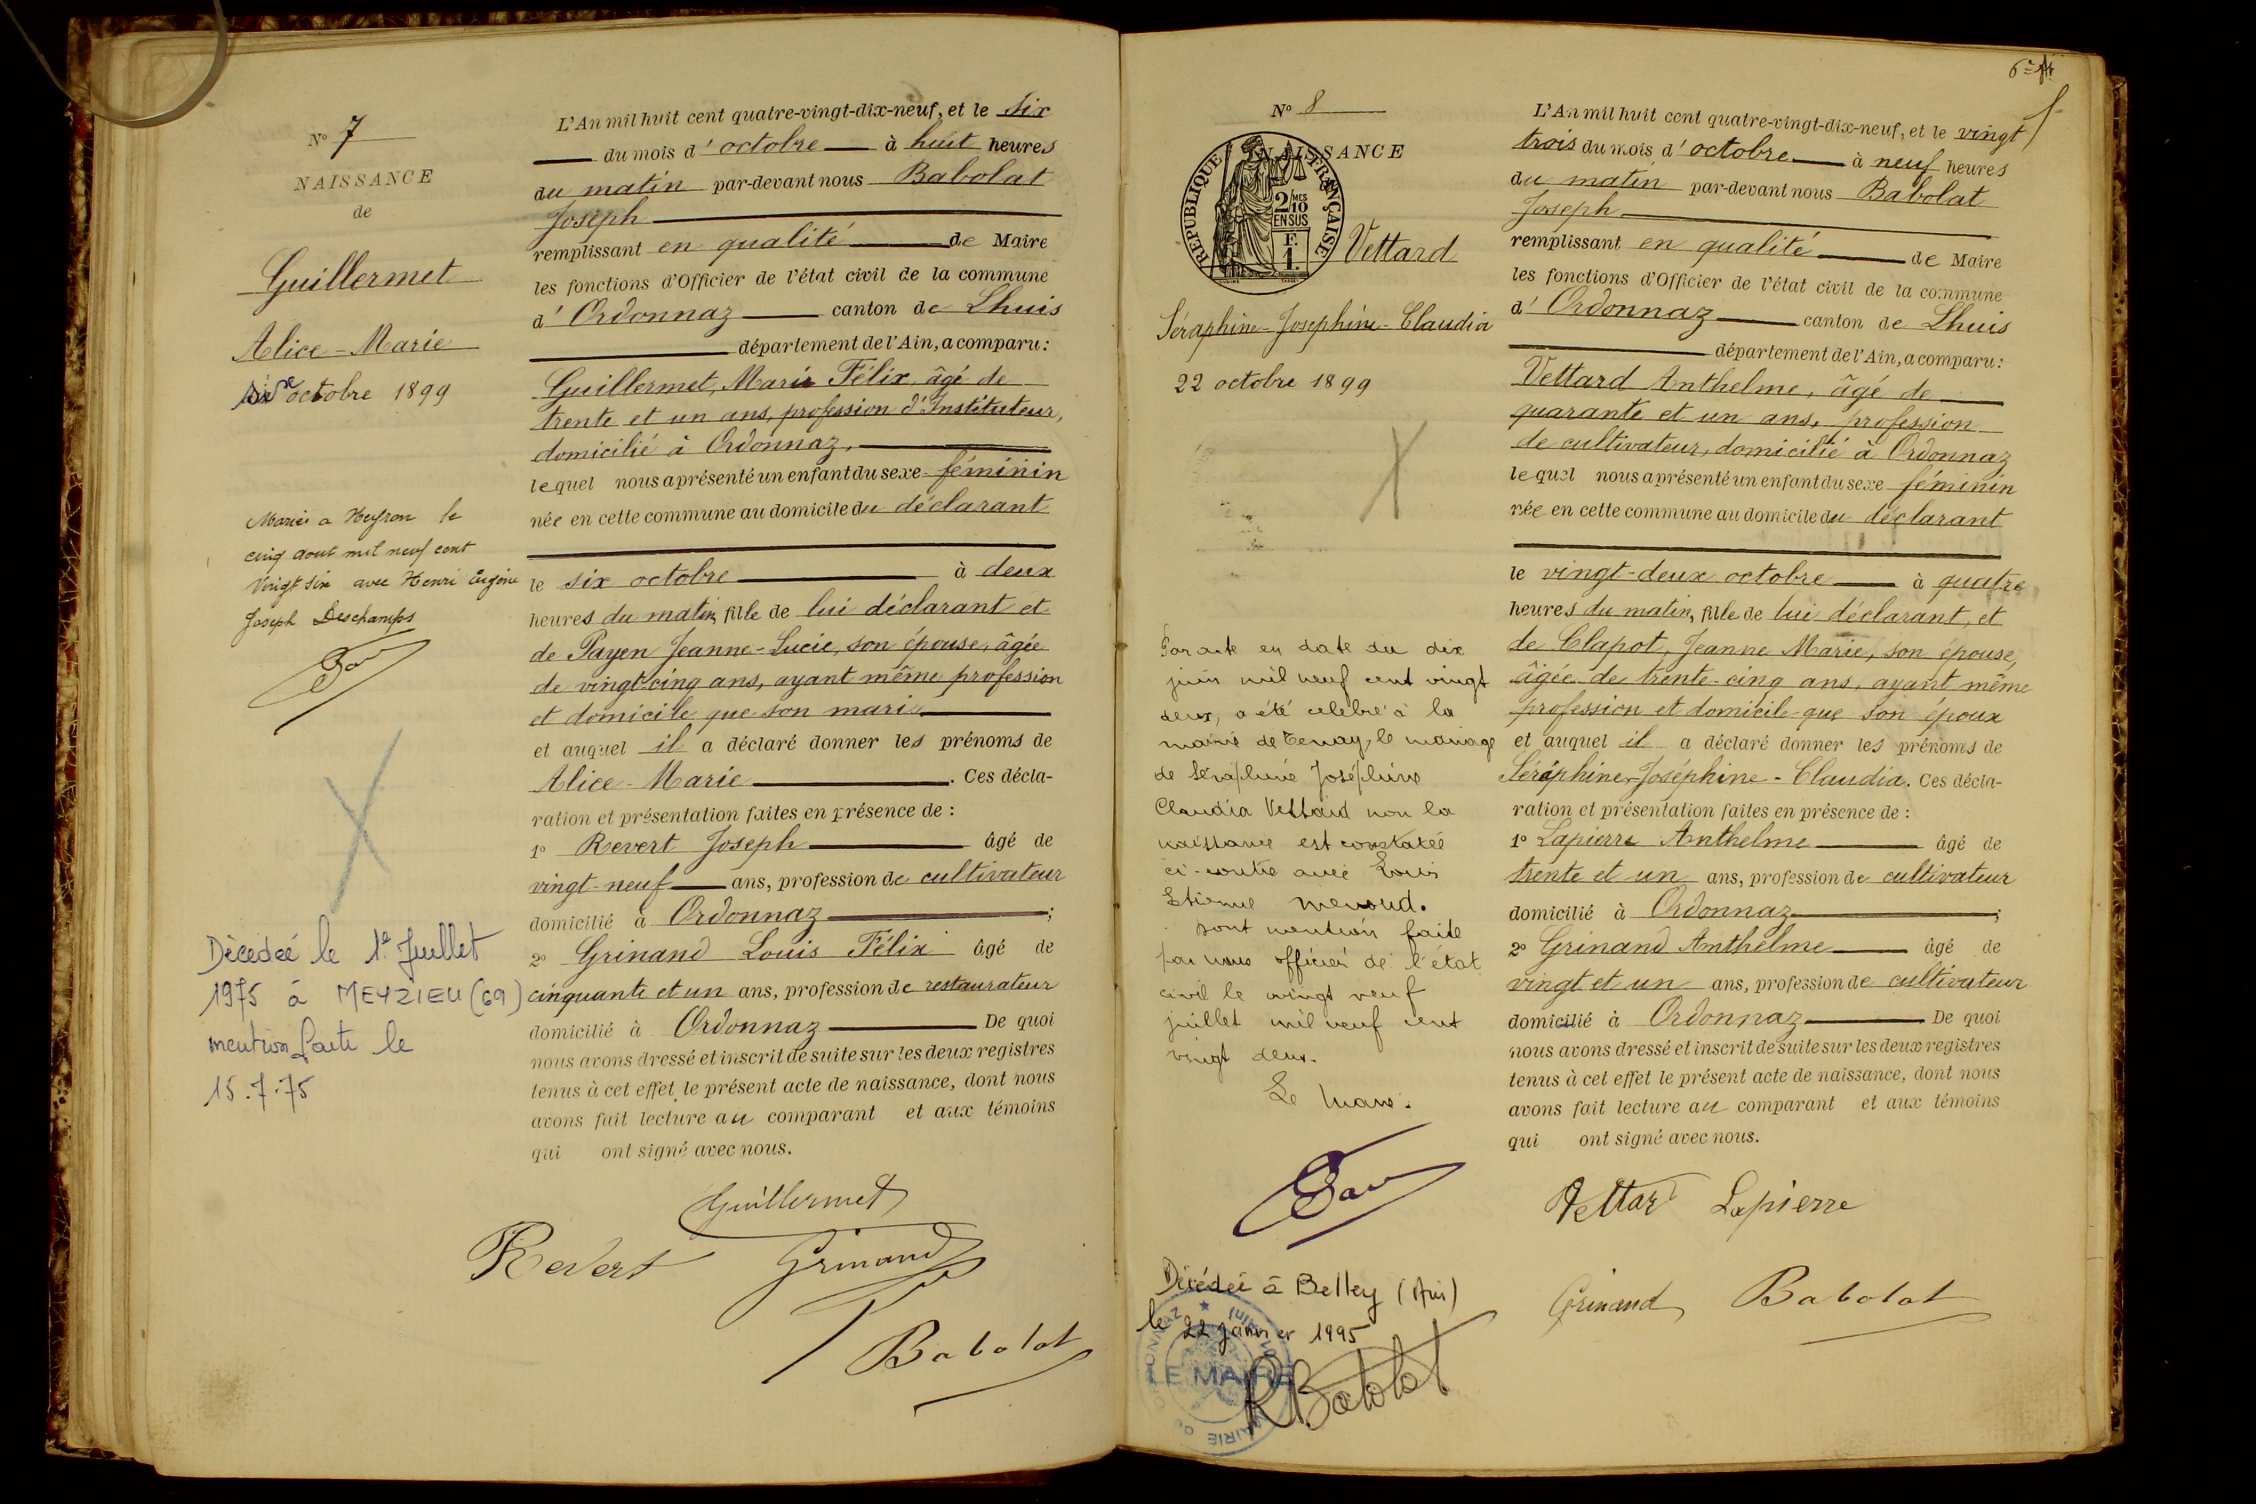 N° 7
NAISSANCE
de
Guillermet
Alice-Marie
Six octobre 1899
Mariée a Heyson le
cinq aout mil neuf cent
vingt six avec Henri Eugène
Joseph Deschamps
Décédée le 1e Juillet
1975 à MEYZIEU (69)
mention faite le
15.7.75
L'An mil huit cent quatre-vingt-dix-neuf, et le six
du mois d'octobre à huit heures
du matin par-devant nous Babolat
Joseph
remplissant en qualité de Maire
les fonctions d'Officier de l'état civil de la commune
d'Ordonnaz canton de Lhuis
département de l'Ain, a comparu:
Guillermet, Marie Félix, âgé de
trente et un ans, profession d'Instituteur,
domicilié à Ordonnaz,
lequel nous a présenté un enfant du sexe féminin
née en cette commune au domicile du déclarant
le six octobre à deux
heures du matin, fille de lui déclarant et
de Payen Jeanne-Lucie, son épouse, âgée
de vingt cinq ans, ayant même profession
et domicile que son mari
et auquel il a déclaré donner les prénoms de
Alice-Marie. Ces décla-
ration et présentation faites en présence de :
1° Revert Joseph âgé de
vingt-neuf ans, profession de cultivateur
domicilié à Ordonnaz ;
2° Grinand Louis Félix âgé de
cinquante et un ans, profession de restaurateur
domicilié à Ordonnaz De quoi
nous avons dressé et inscrit de suite sur les deux registres
tenus à cet effet le présent acte de naissance, dont nous
avons fait lecture au comparant et aux témoins
qui ont signé avec nous.
Guillermet
Revert Grinand
Babolat
N° 8
NAISSANCE
REPUBLIQUE FRANÇAISE
2/10 MES
EN SUS
F.
1.
Vettard
Séraphine-Josephine-Claudia
22 octobre 1899
Par acte en date du dix
juin mil neuf cent vingt
deux, a été célébré à la
mairie de Tenay, le mariage
de Séraphine Joséphine
Claudia Vettard non la
naissance est constatée
ci-contre avec Louis
Etienne Menoud.
sont mention faite
par nous officier de l'état
civil le vingt neuf
juillet mil neuf cent
vingt deux.
Le Maire.
Décédée à Belley (Ain)
le 22 janvier 1995
LE MAIRE
R Babolat
L'An mil huit cent quatre-vingt-dix-neuf, et le vingt
trois du mois d'octobre à neuf heures
du matin par-devant nous Babolat
Joseph
remplissant en qualité de Maire
les fonctions d'Officier de l'état civil de la commune
d'Ordonnaz canton de Lhuis
département de l'Ain, a comparu:
Vettard Anthelme, âgé de
quarante et un ans, profession
de cultivateur, domicilié à Ordonnaz
lequel nous a présenté un enfant du sexe féminin
née en cette commune au domicile du déclarant
le vingt-deux octobre à quatre
heures du matin, fille de lui déclarant, et
de Clapot, Jeanne Marie, son épouse,
âgée de trente-cinq ans, ayant même
profession et domicile que son époux
et auquel il a déclaré donner les prénoms de
Séraphine-Joséphine-Claudia. Ces décla-
ration et présentation faites en présence de :
1° Lapierre Anthelme âgé de
trente et un ans, profession de cultivateur
domicilié à Ordonnaz ;
2° Grinand Anthelme âgé de
vingt et un ans, profession de cultivateur
domicilié à Ordonnaz De quoi
nous avons dressé et inscrit de suite sur les deux registres
tenus à cet effet le présent acte de naissance, dont nous
avons fait lecture au comparant et aux témoins
qui ont signé avec nous.
Vettard Lapierre
Grinand Babolat